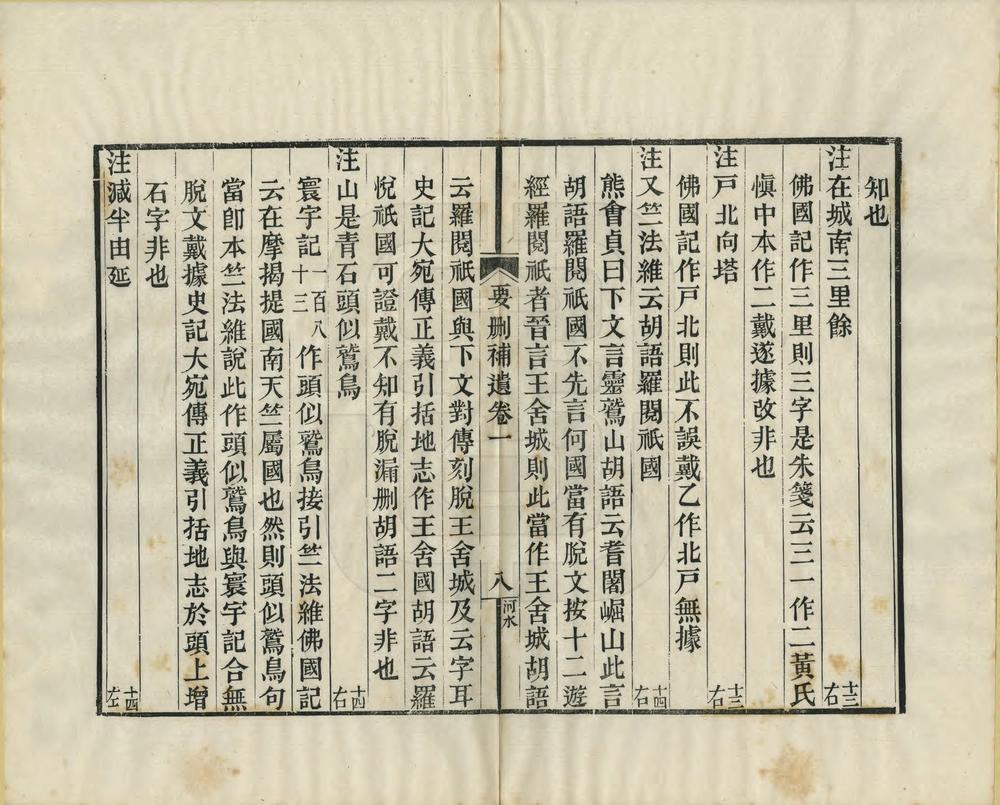 知也
注在城南三里餘 十三右
佛國記作三里則三字是朱箋云三一作二黃氏
愼中本作二戴遂據改非也
注戸北向塔 十三右
佛國記作戸北則此不誤戴乙作北戸無據
注又竺法維云胡語羅閱祇國 十四右
熊會貞曰下文言靈鷲山胡語云耆闍崛山此言
胡語羅閱祇國不先言何國當有脫文按十二遊
經羅閱祇者晉言王舍城則此當作王舍城胡語
要刪補遺卷一 八 河水
云羅閱祇國與下文對傳刻脫王舍城及云字耳
史記大宛傳正義引括地志作王舍國胡語云羅
悅祇國可證戴不知有脫漏刪胡語二字非也
注山是青石頭似鷲鳥 十四右
寰宇記一百八十三作頭似鷲鳥接引竺法維佛國記
云在摩揭提國南天竺屬國也然則頭似鷲鳥句
當卽本竺法維說此作頭似鷲鳥與寰宇記合無
脫文戴據史記大宛傳正義引括地志於頭上增
石字非也
注減半由延 十四左